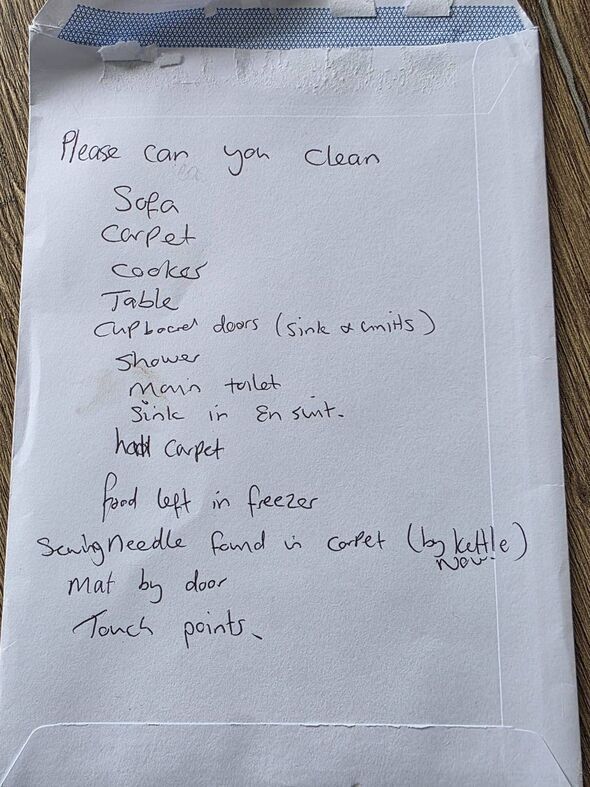 Please can you clean
Sofa
Carpet
Cooker
Table
Cupboard doors (sink & units)
Shower
main toilet
Sink in En suit.
hall carpet
food left in freezer
Sewing Needle found in carpet (by kettle)
now
Mat by door
Touch points.